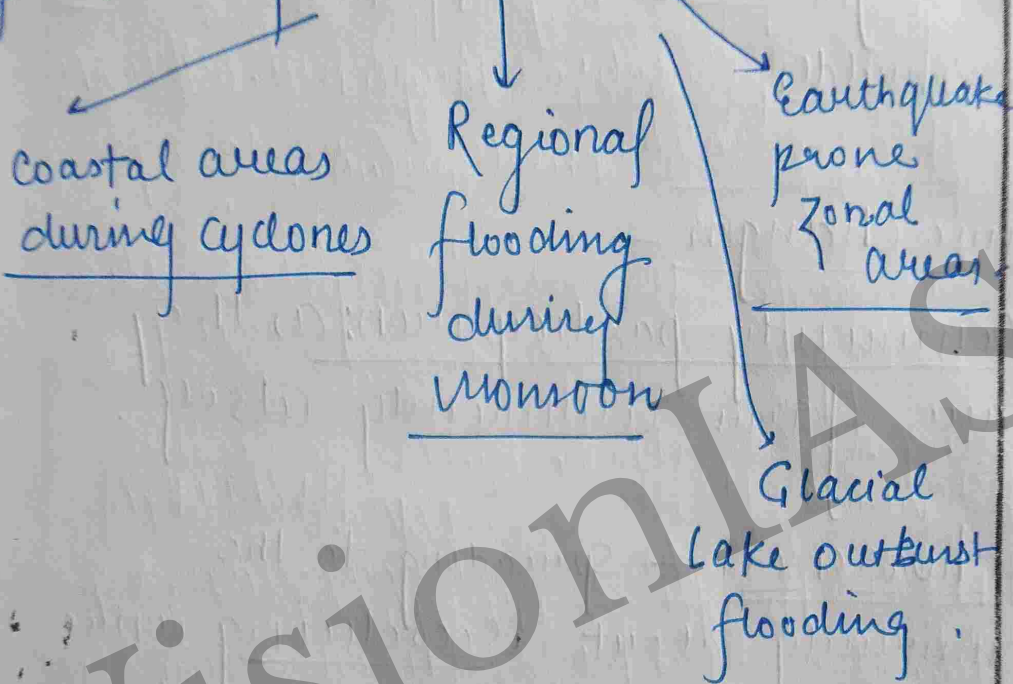 coastal areas
during cyclones
Regional
flooding
during
monsoon
Earthquake
prone
zonal
areas.
Glacial
Lake outburst
flooding.
VisionIAS